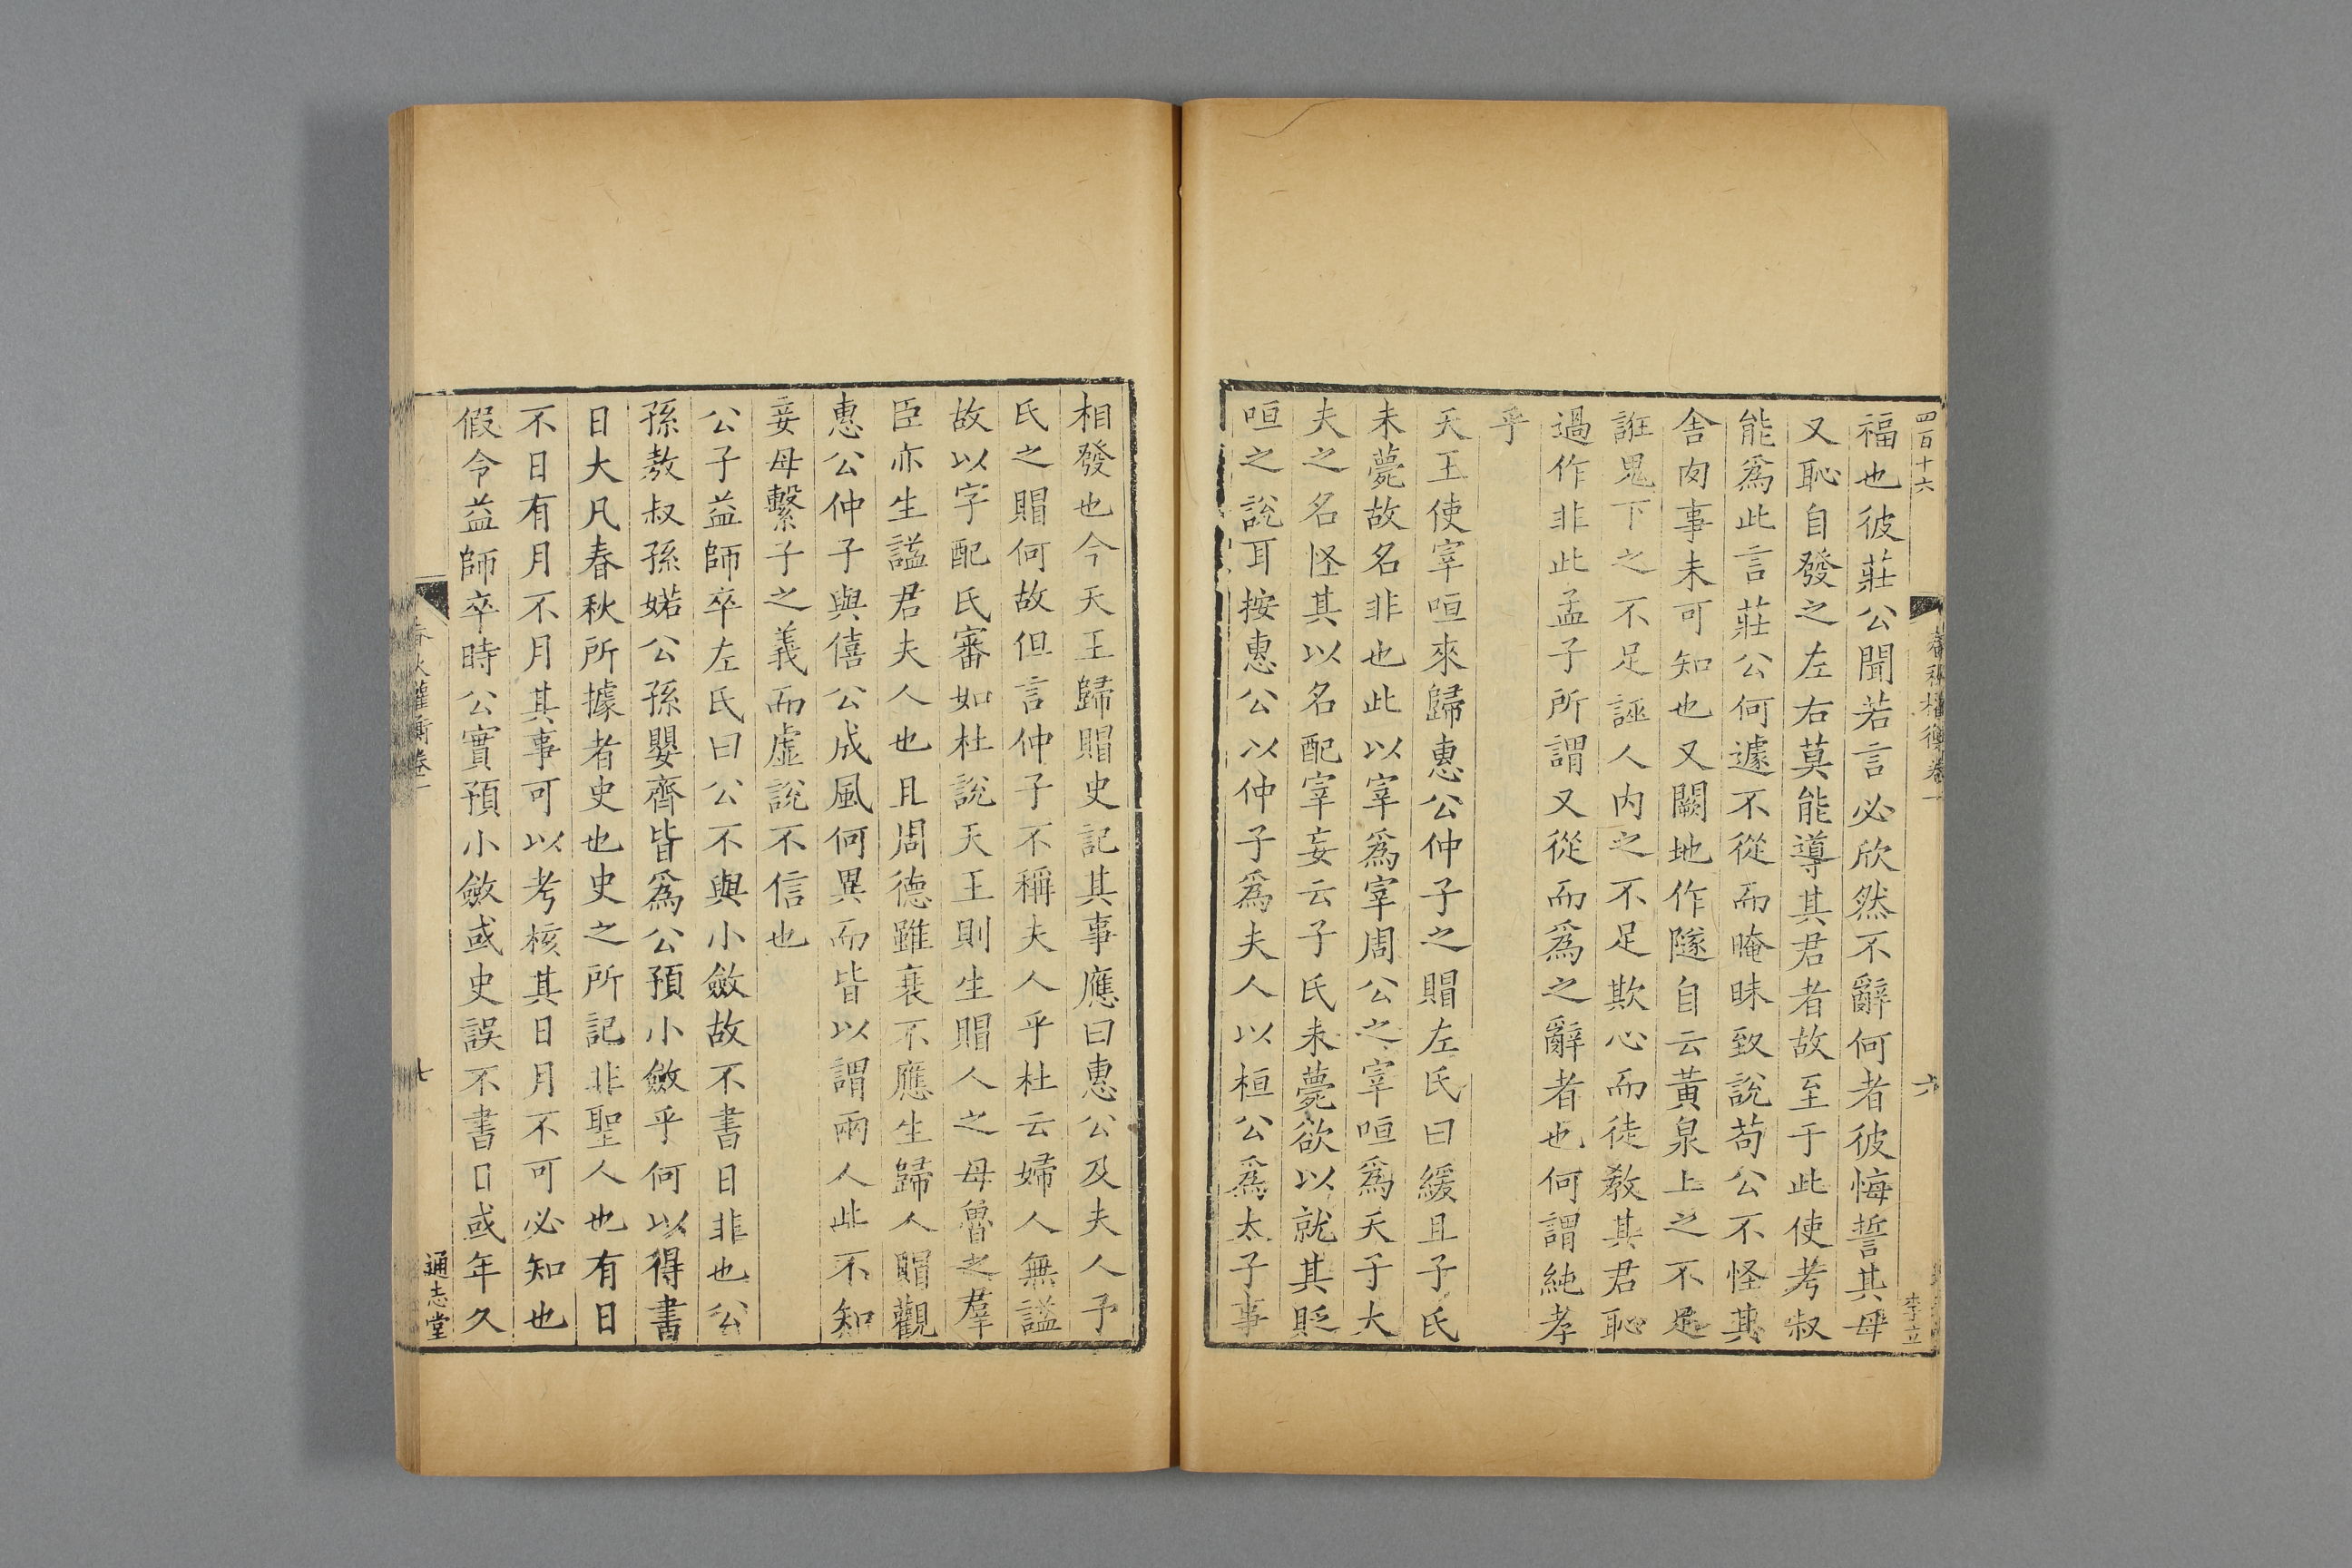 四百十六
春秋權衡卷一
六
李立
福也彼莊公聞若言必欣然不辭何者彼悔誓其母
又恥自發之左右莫能導其君者故至于此使考叔
能爲此言莊公何遽不從而晻昧致說苟公不怪其
舍肉事未可知也又闕地作隧自云黃泉上之不足
誑鬼下之不足誣人内之不足欺心而徒敎其君恥
過作非此孟子所謂又從而爲之辭者也何謂純孝
乎
天王使宰咺來歸惠公仲子之賵左氏曰緩且子氏
未薨故名非也此以宰爲宰周公之宰咺爲天子大
夫之名怪其以名配宰妄云子氏未薨欲以就其貶
咺之說耳按惠公以仲子爲夫人以桓公爲太子事
相發也今天王歸賵史記其事應曰惠公及夫人子
氏之賵何故但言仲子不稱夫人乎杜云婦人無謚
故以字配氏審如杜說天王則生賵人之母魯之羣
臣亦生謚君夫人也且周德雖衰不應生歸人賵觀
惠公仲子與僖公成風何異而皆以謂兩人此不知
妾母繫子之義而虛說不信也
公子益師卒左氏曰公不與小斂故不書日非也公
孫敖叔孫婼公孫嬰齊皆爲公預小斂乎何以得書
日大凡春秋所據者史也史之所記非聖人也有日
不日有月不月其事可以考核其日月不可必知也
假令益師卒時公實預小斂或史誤不書日或年久
春秋權衡卷一
七
通志堂